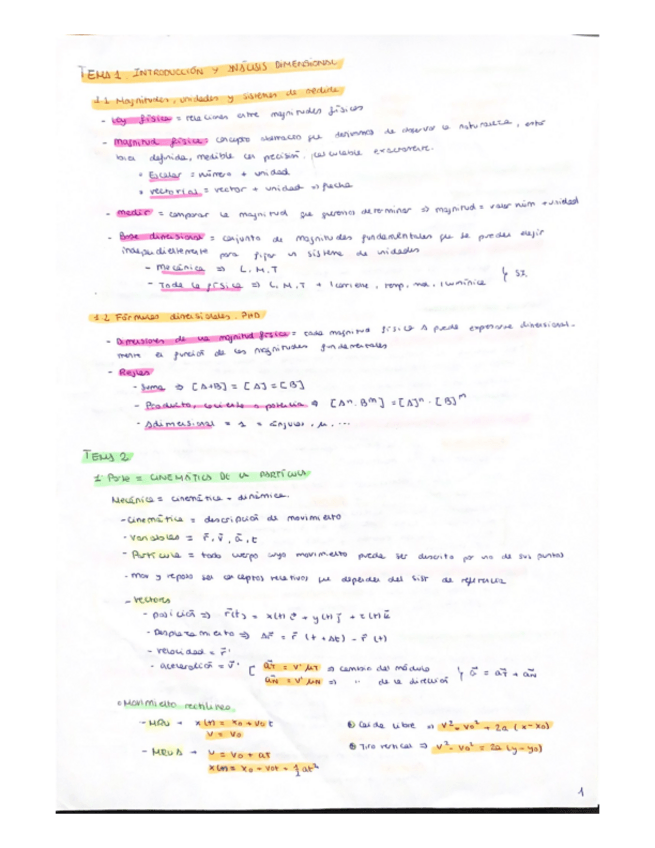 TEMA 1. INTRODUCCIÓN Y ANÁLISIS DIMENSIONAL
1.1 Magnitudes, unidades y sistemas de medida
- Ley física = relaciones entre magnitudes físicas
- Magnitud física: concepto abstracto que derivamos de observar la naturaleza, estar
bien definida, medible con precisión, calculable exactamente.
Escalar = número + unidad
vectorial = vector + unidad ⇒ flecha
- medir = comparar la magnitud que queremos determinar ⇒ magnitud = valor núm + unidad
- Base dimensional = conjunto de magnitudes fundamentales que se pueden elegir
independientemente para fijar un sistema de unidades
- Mecánica ⇒ L, M, T
- Toda la física ⇒ L, M, T + I corriente, temp, ilumínica } SI
1.2 Fórmulas dimensionales.
- Dimensiones de una magnitud física = cada magnitud física A puede expresarse dimensional-
mente en función de las magnitudes fundamentales
- Reglas
- Suma ⇒ [A+B] = [A] = [B]
- Producto, cociente o potencia ⇒ [Aⁿ · Bᵐ] = [A]ⁿ · [B]ᵐ
- Adimensional = 1 = ángulos, μ, ...
TEMA 2
1ª Parte = CINEMÁTICA DE LA PARTÍCULA
Mecánica = cinemática + dinámica.
- Cinemática = descripción de movimiento
- Variables = r⃗, v⃗, a⃗, t
- Partícula = todo cuerpo cuyo movimiento puede ser descrito por uno de sus puntos
- Mov y reposo son conceptos relativos que dependen del sist de referencia
- Vectores
- posición ⇒ r⃗(t) = x(t) i⃗ + y(t) j⃗ + z(t) k⃗
- Desplazamiento ⇒ Δr⃗ = r⃗ (t + Δt) - r⃗ (t)
- velocidad = r⃗'
- aceleración = v⃗' [ a⃗T = v' μT ⇒ cambio del módulo
a⃗N = v' μN ⇒ " de la dirección } a⃗ = a⃗T + a⃗N
Movimiento rectilíneo
- MRU → x(t) = x₀ + v₀ t
v = v₀
Caída libre ⇒ v² - v₀² + 2a (x - x₀)
- MRUA → v = v₀ + at
Tiro vertical ⇒ v² - v₀² = 2a (y - y₀)
x(t) = x₀ + v₀t + ½ at²
1